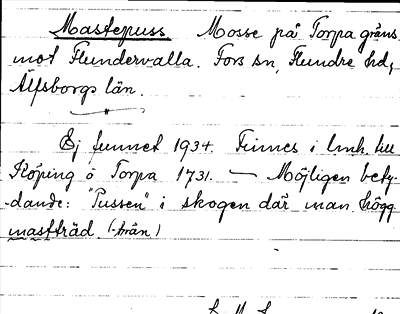 Mastepuss Mosse på Torpa gräns
mot Flundervalla. Fors sn, Flundre hd,
Älfsborgs län.
Ej funnet 1934. Finnes i lmh. till
Köping o Torpa 1731. — Möjligen bety-
dande: "Pussen" i skogen där man högg
mastträd. (-trän)